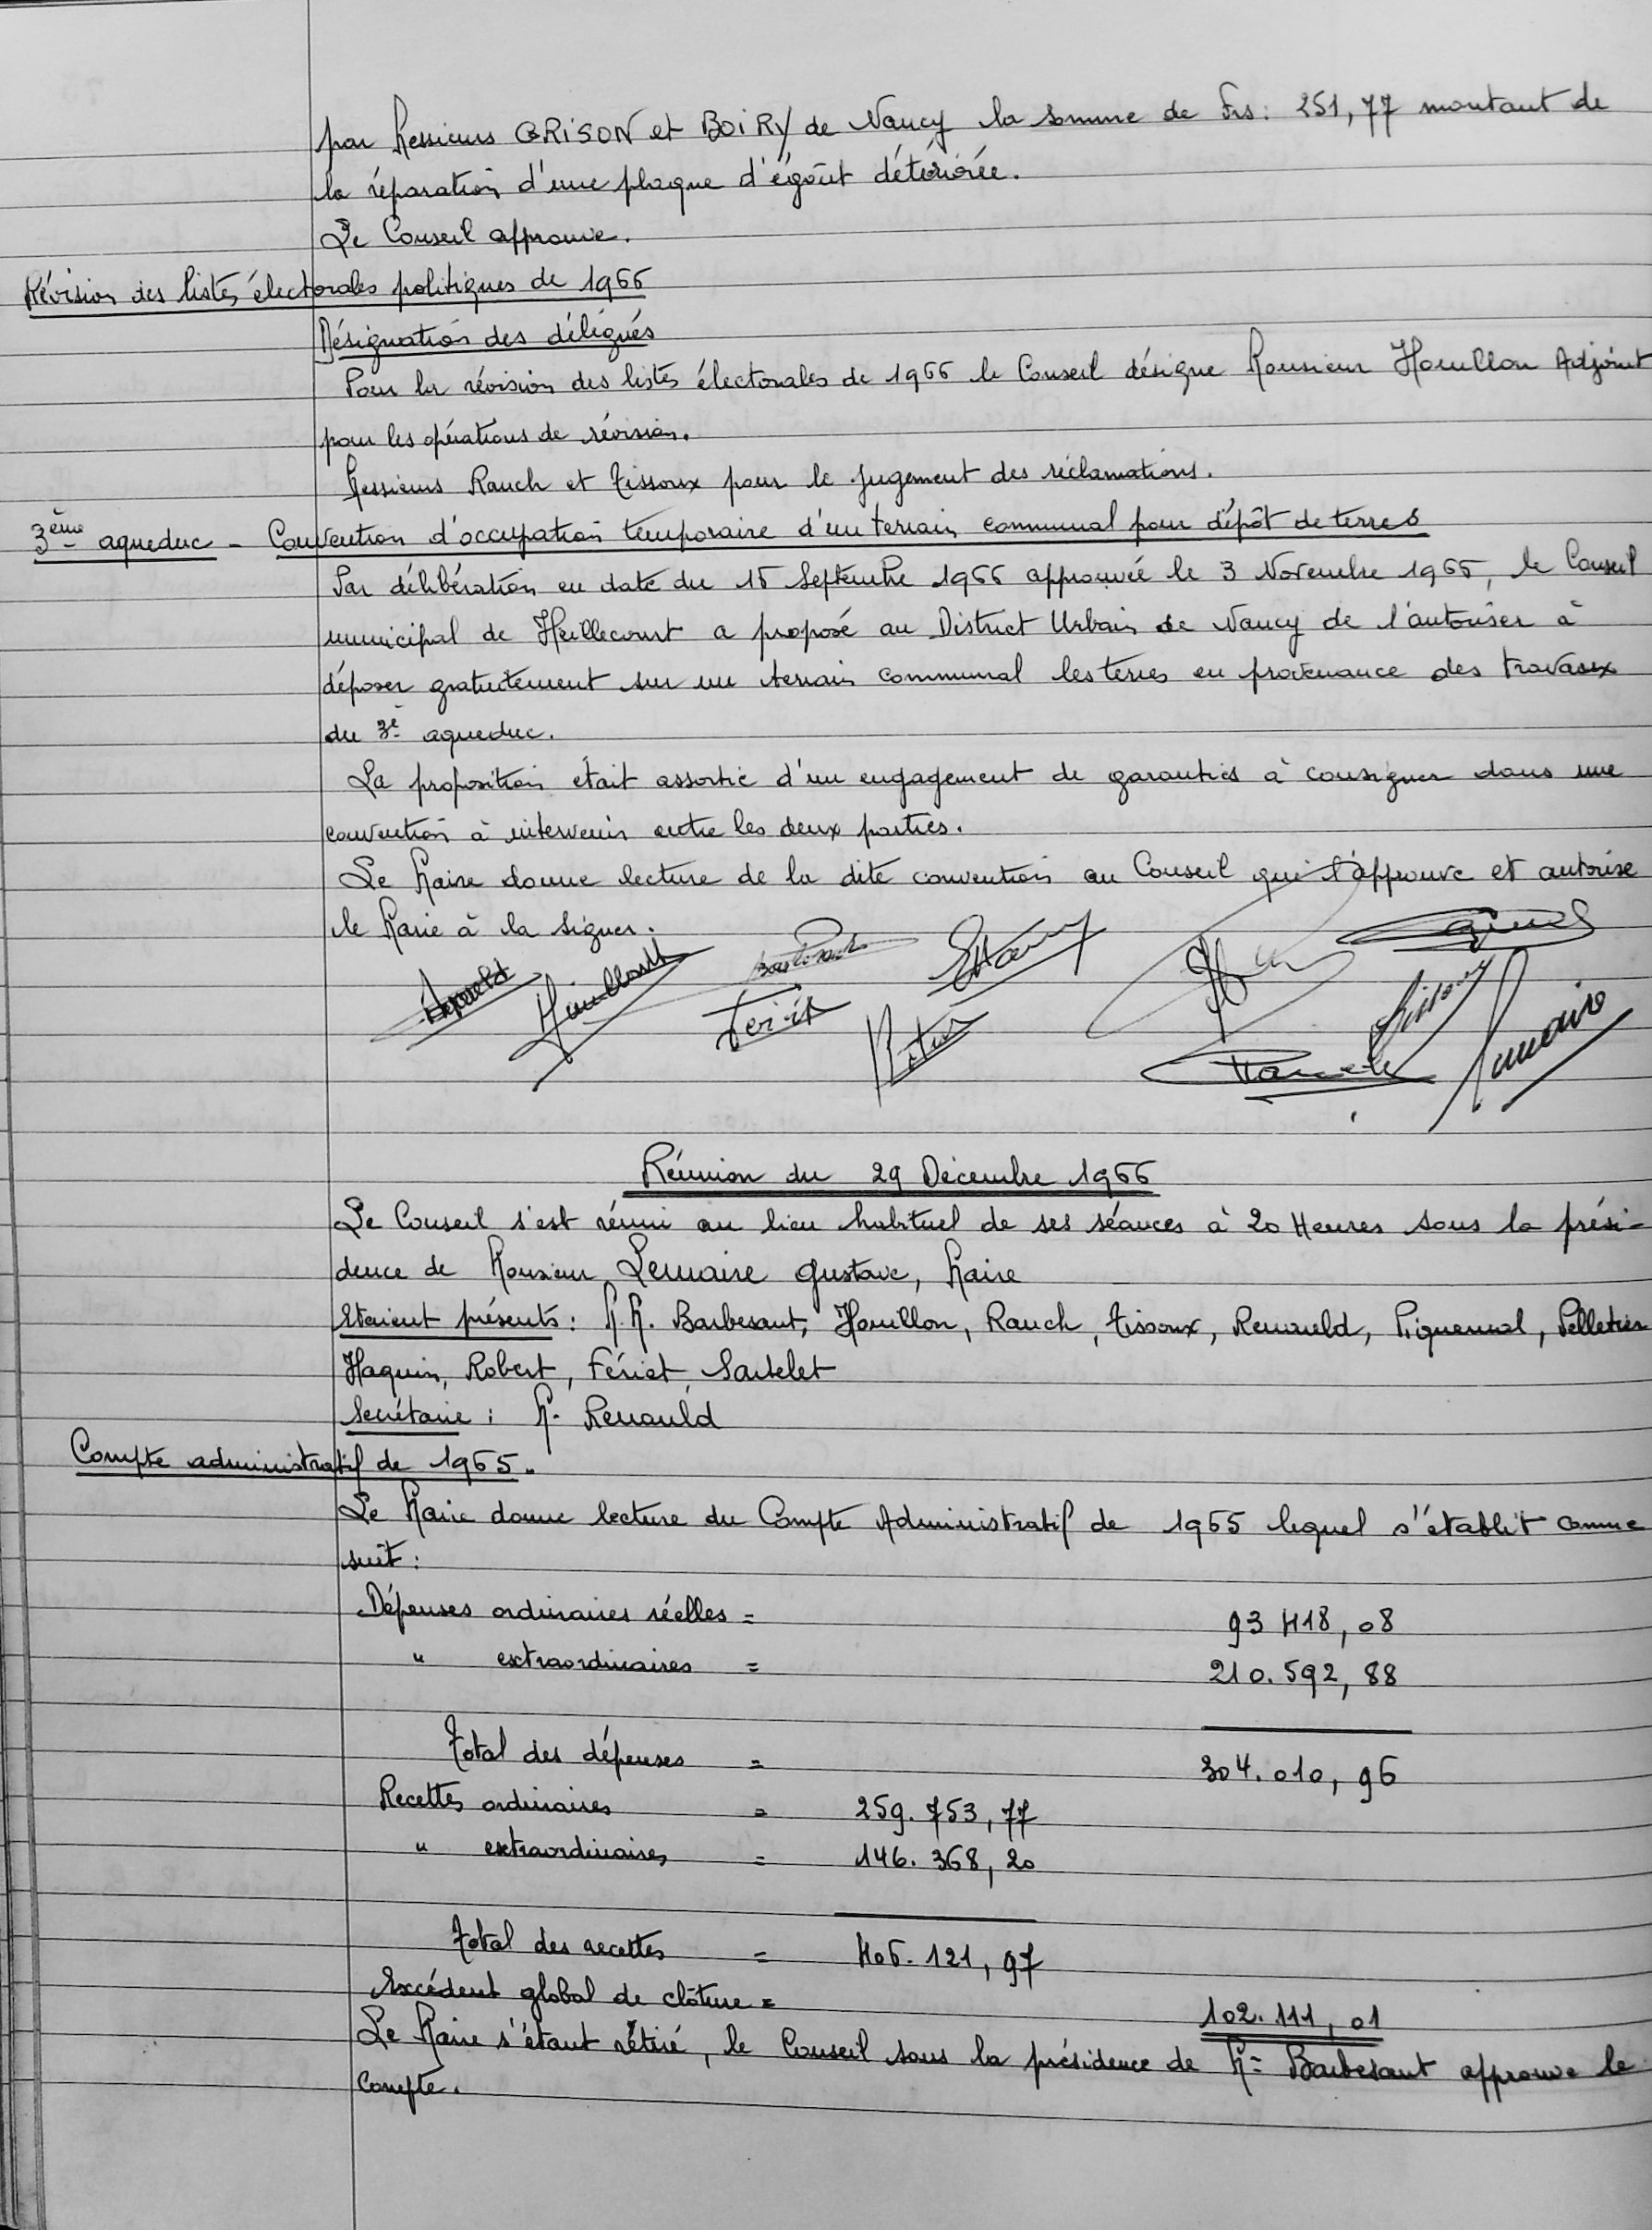 par Messieurs GRISON et BOIRY de Nancy la somme de Frs: 251,77 montant de
la réparation d'une plaque d'égoût détériorée.
Le Conseil approuve.
Révision des listes électorales politiques de 1966
Désignation des délégués
Pour la révision des listes électorales de 1966 le Conseil désigne Monsieur Houillon Adjoint
pour les opérations de révision.
Messieurs Rauch et Tissoux pour le jugement des réclamations.
3ème aqueduc - Convention d'occupation temporaire d'un terrain communal pour dépôt de terres
Par délibération en date du 15 Septembre 1966 approuvée le 3 Novembre 1966, le Conseil
municipal de Heillecourt a proposé au District Urbain de Nancy de l'autoriser à
déposer gratuitement sur un terrain communal les terres en provenance des travaux
du 3è aqueduc.
La proposition était assortie d'un engagement de garanties à consigner dans une
convention à intervenir entre les deux parties.
Le Maire donne lecture de la dite convention au Conseil qui l'approuve et autorise
le Maire à la signer.
Réunion du 29 Décembre 1966
Le Conseil s'est réuni au lieu habituel de ses séances à 20 Heures sous la prési-
dence de Monsieur Lemaire Gustave, Maire
Etaient présents: M.M. Barbesant, Houillon, Rauch, Tissoux, Renauld, Piquemal, Pelletier
Haquin, Robert, Fériet, Sartelet
Secrétaire : M. Renauld
Compte administratif de 1965.
Le Maire donne lecture du Compte Administratif de 1965 lequel s'établit comme
suit :
Dépenses ordinaires réelles = 93 418,08
" extraordinaires = 210.592,88
Total des dépenses = 304.010,96
Recettes ordinaires = 259.753,77
" extraordinaires = 146.368,20
Total des recettes = 406.121,97
Excédent global de clôture = 102.111,01
Le Maire s'étant retiré, le Conseil sous la présidence de M= Barbesant approuve le
compte.